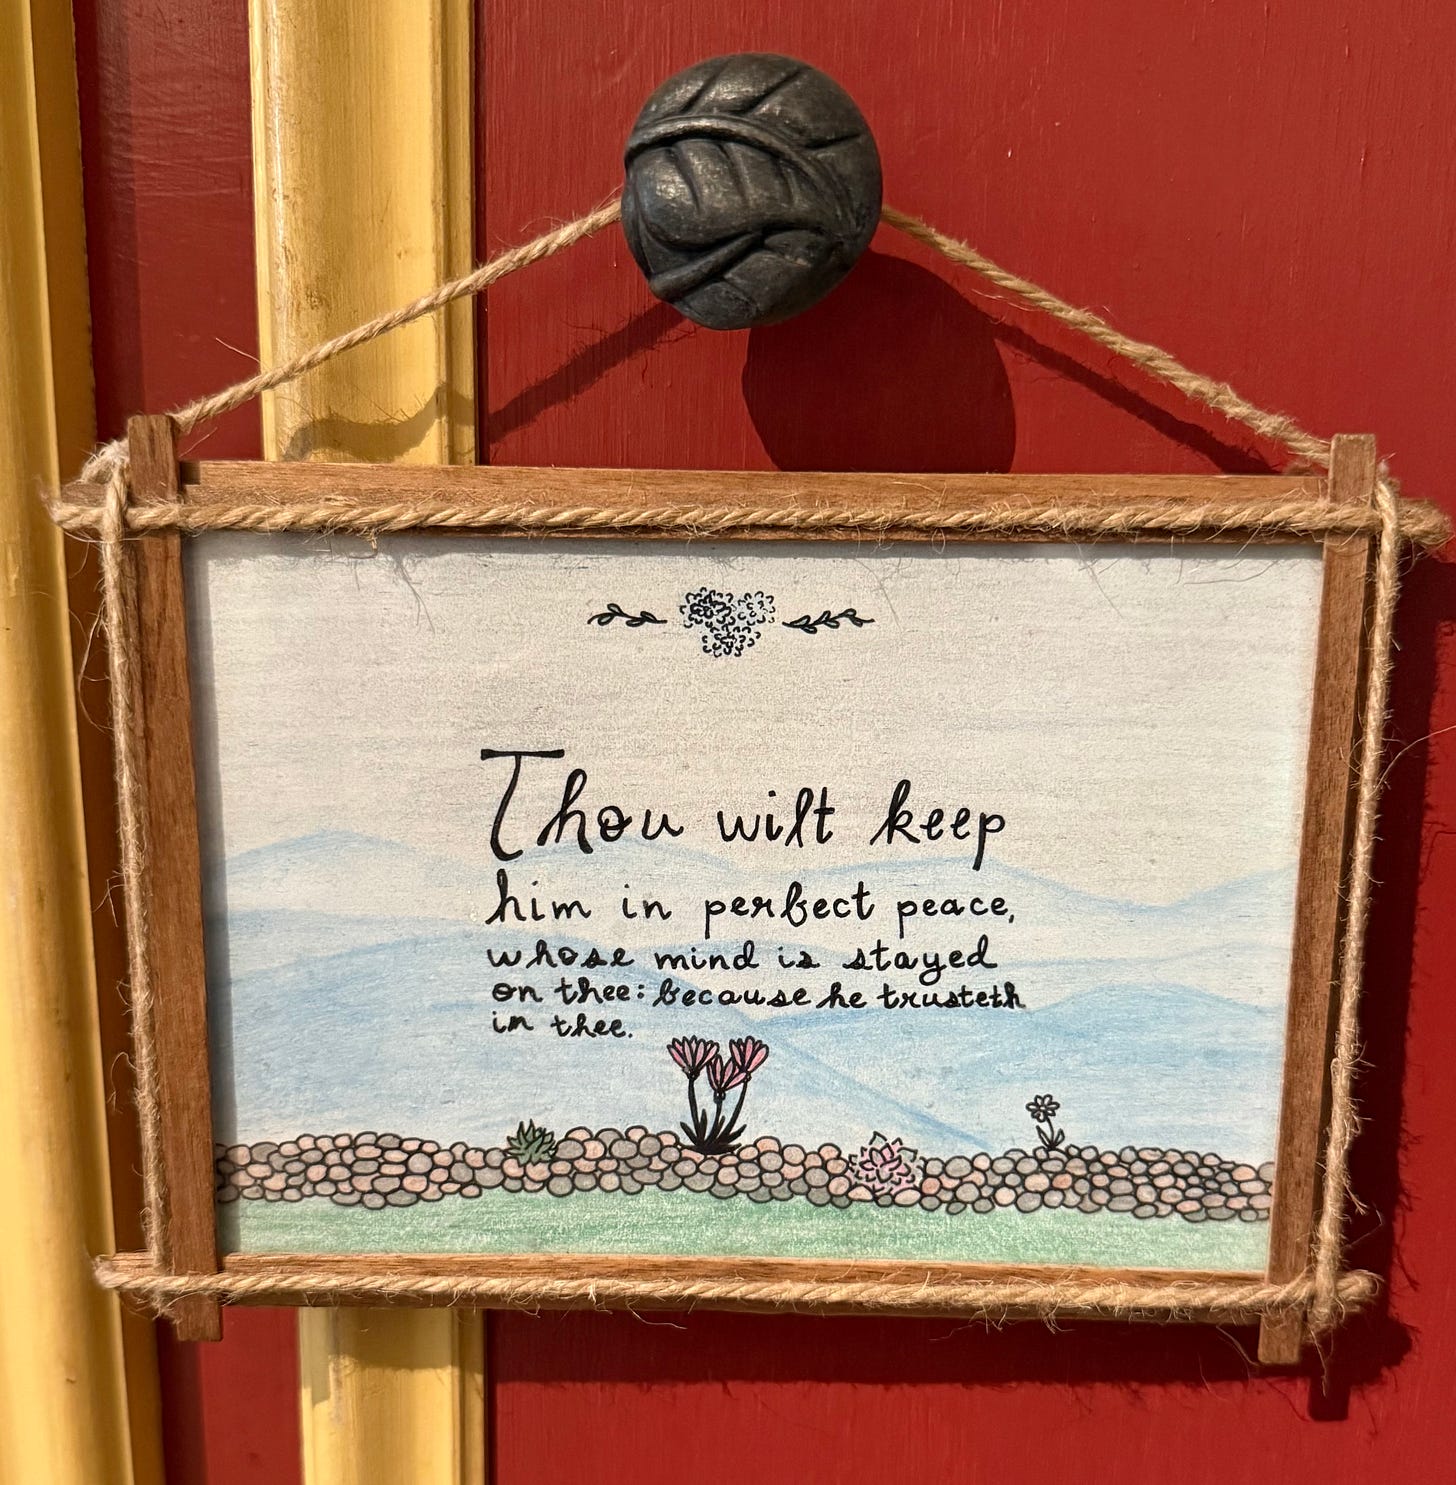 Thou wilt keep
him in perfect peace,
whose mind is stayed
on thee: because he trusteth
in thee.